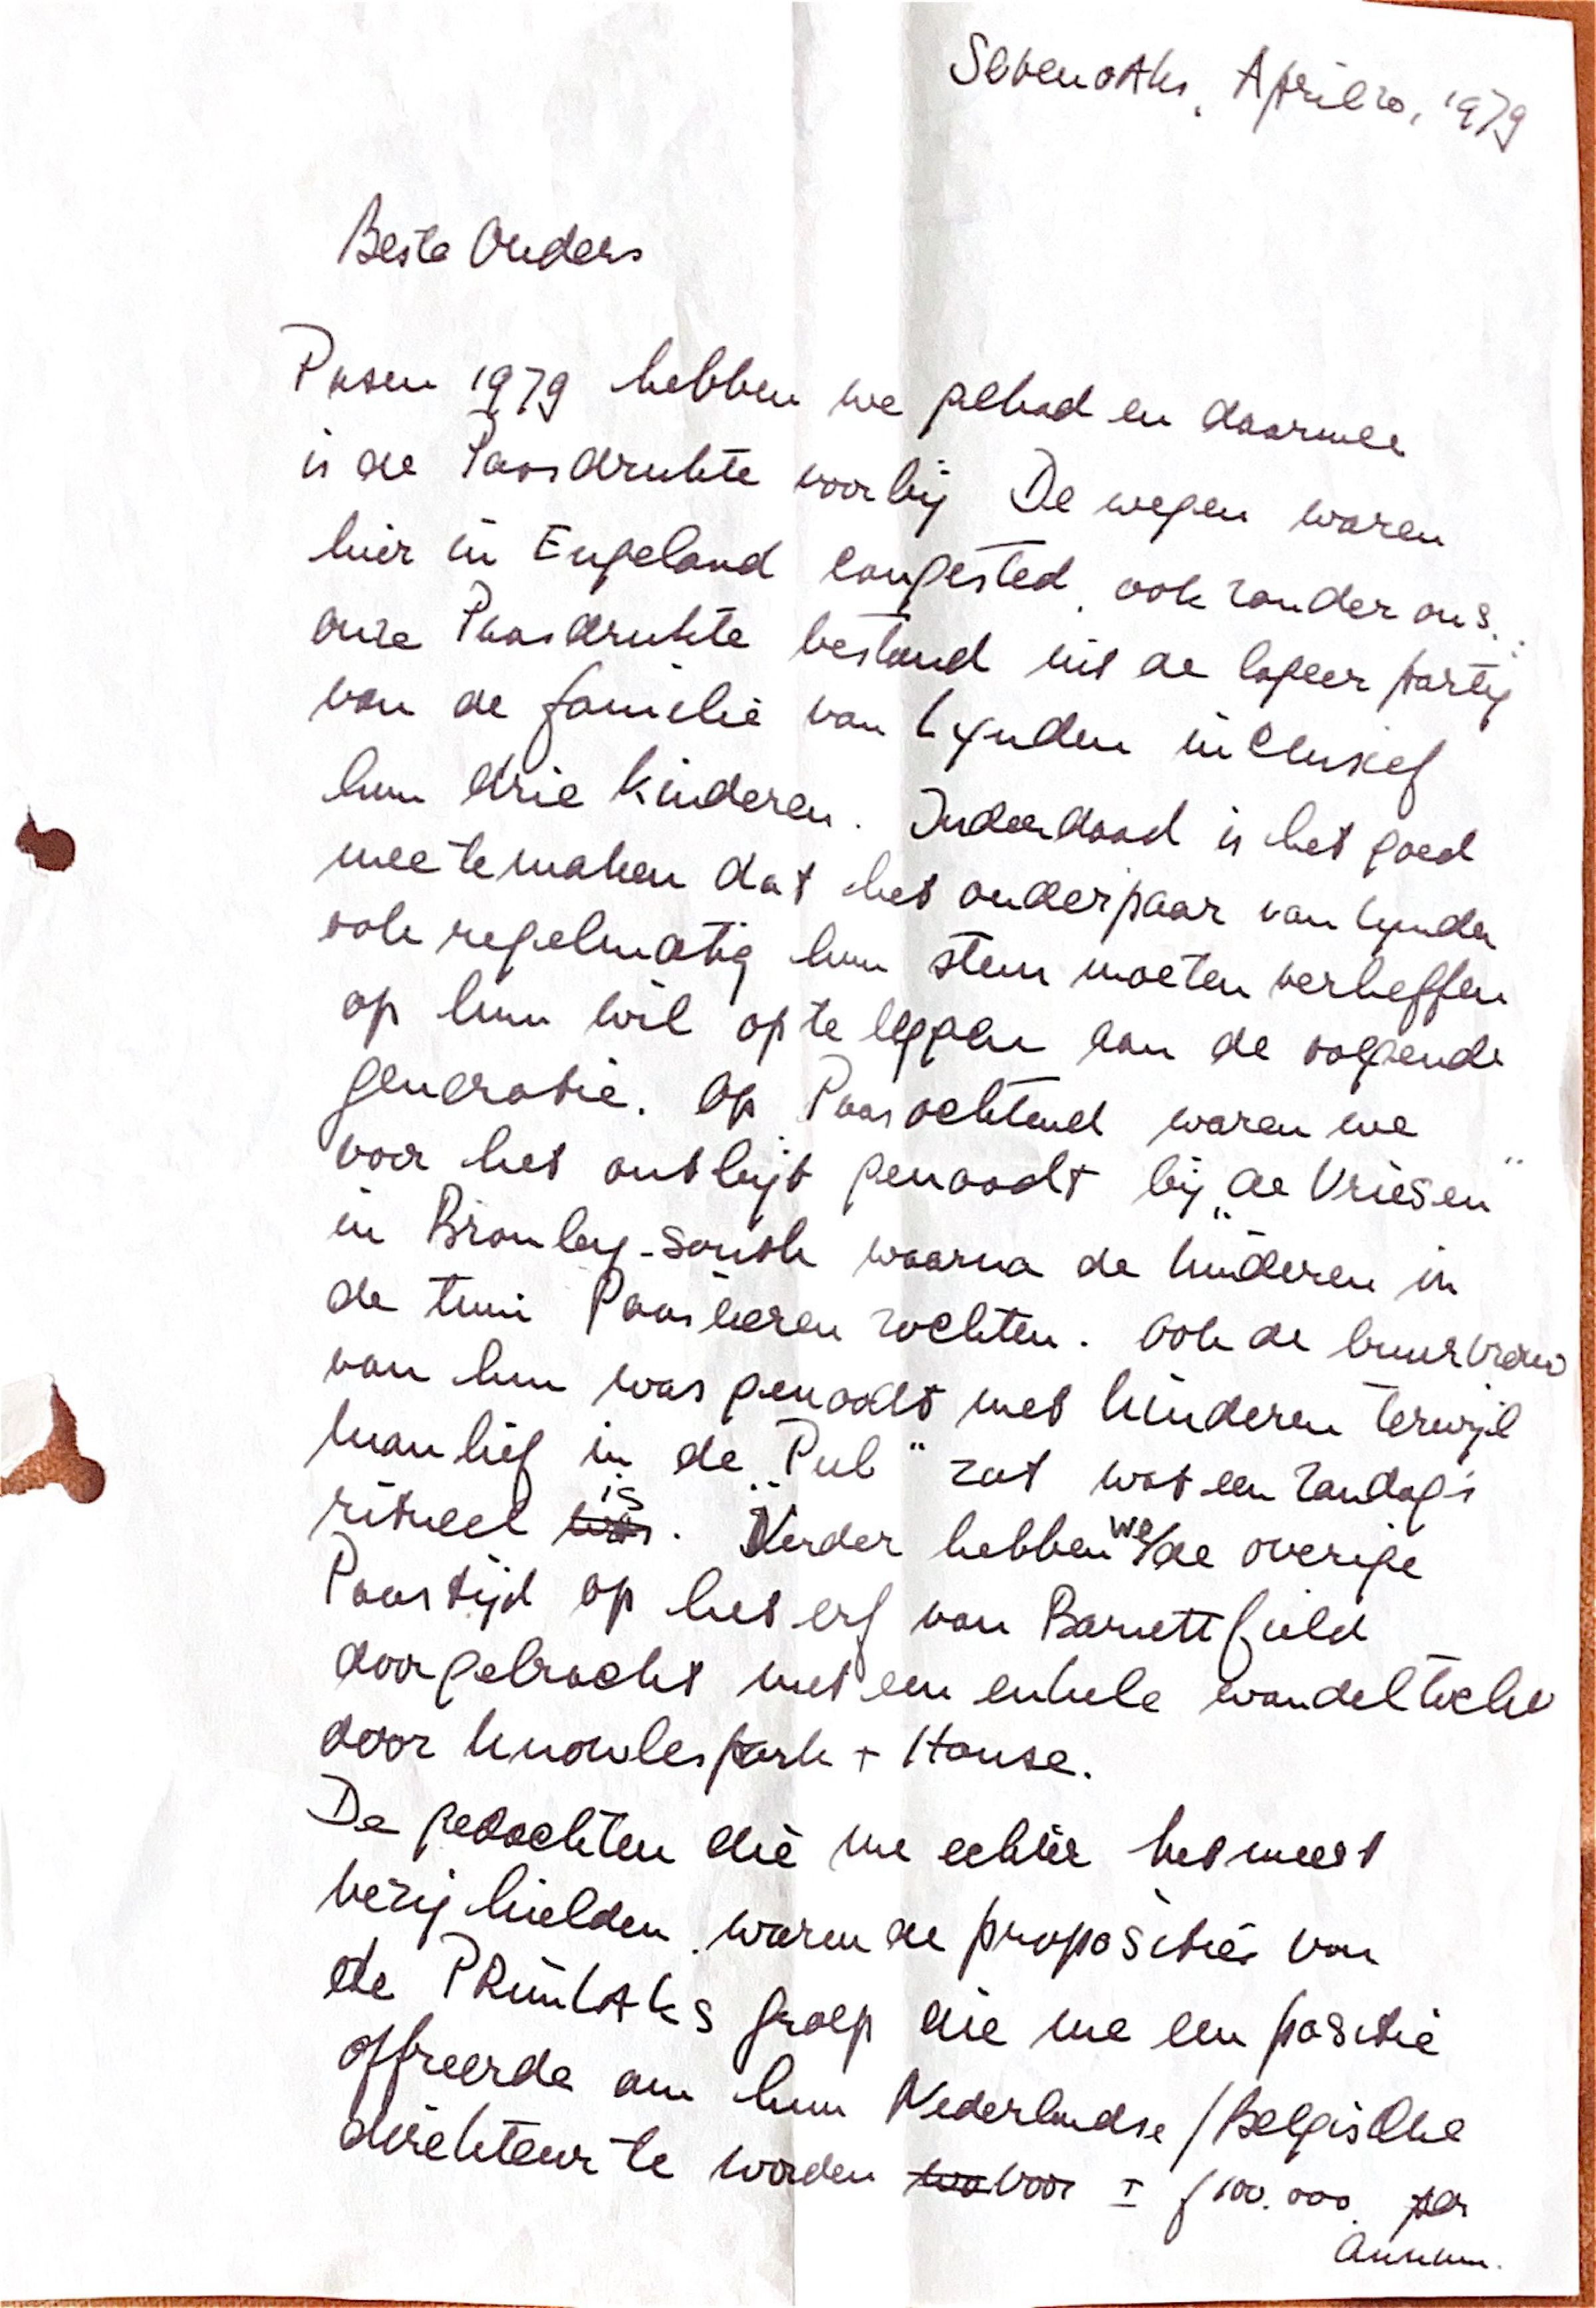 Sevenoaks, April 20, 1979
Beste Ouders
Pasen 1979 hebben we gehad en daarmee
is de Paasdrukte voorbij De wegen waren
hier in Engeland congested, ook zonder ons.
onze Paasdrukte bestond uit de logeer partij
van de familie van Lynden inclusief
hun drie kinderen. Inderdaad is het goed
mee te maken dat het ouderpaar van Lynden
ook regelmatig hun stem moeten verheffen
op hun wil op te leggen aan de volgende
generatie. Op Paasochtend waren we
voor het ontbijt genoodt bij „de Vriesen"
in Bromley-South waarna de kinderen in
de tuin Paaseieren zochten. Ook de buurvrouw
van hun was genoodt met kinderen terwijl
manlief in de „Pub" zat wat een zondags
ritueel is. Verder hebben we de overige
Paastijd op het erf van Barnettfield
doorgebracht met een enkele wandeltocht
door Knowlespark + House.
De gedachten die me echter het meest
bezig hielden, waren de proposities van
de groep die me een positie
offreerde om hun Nederlandse / Belgische
direkteur te worden voor ± ƒ 100.000 per
annum.